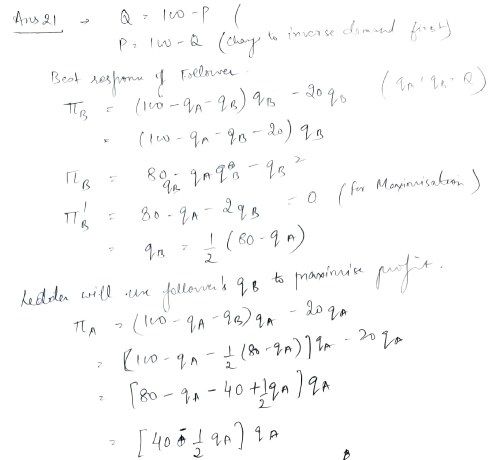 Ans 21 → Q = 100 - P (
P = 100 - Q (change to inverse demand first)
Best response of Follower.
π_B = (100 - q_A - q_B) q_B - 20 q_B (q_A + q_B = Q)
= (100 - q_A - q_B - 20) q_B
π_B = 80 q_B - q_A q_B - q_B²
π'_B = 80 - q_A - 2 q_B = 0 (for Maximisation)
= q_B = 1/2 (80 - q_A)
Leader will use follower's q_B to maximise profit.
π_A = (100 - q_A - q_B) q_A - 20 q_A
= [100 - q_A - 1/2 (80 - q_A)] q_A - 20 q_A
= [80 - q_A - 40 + 1/2 q_A] q_A
= [40 - 1/2 q_A] q_A